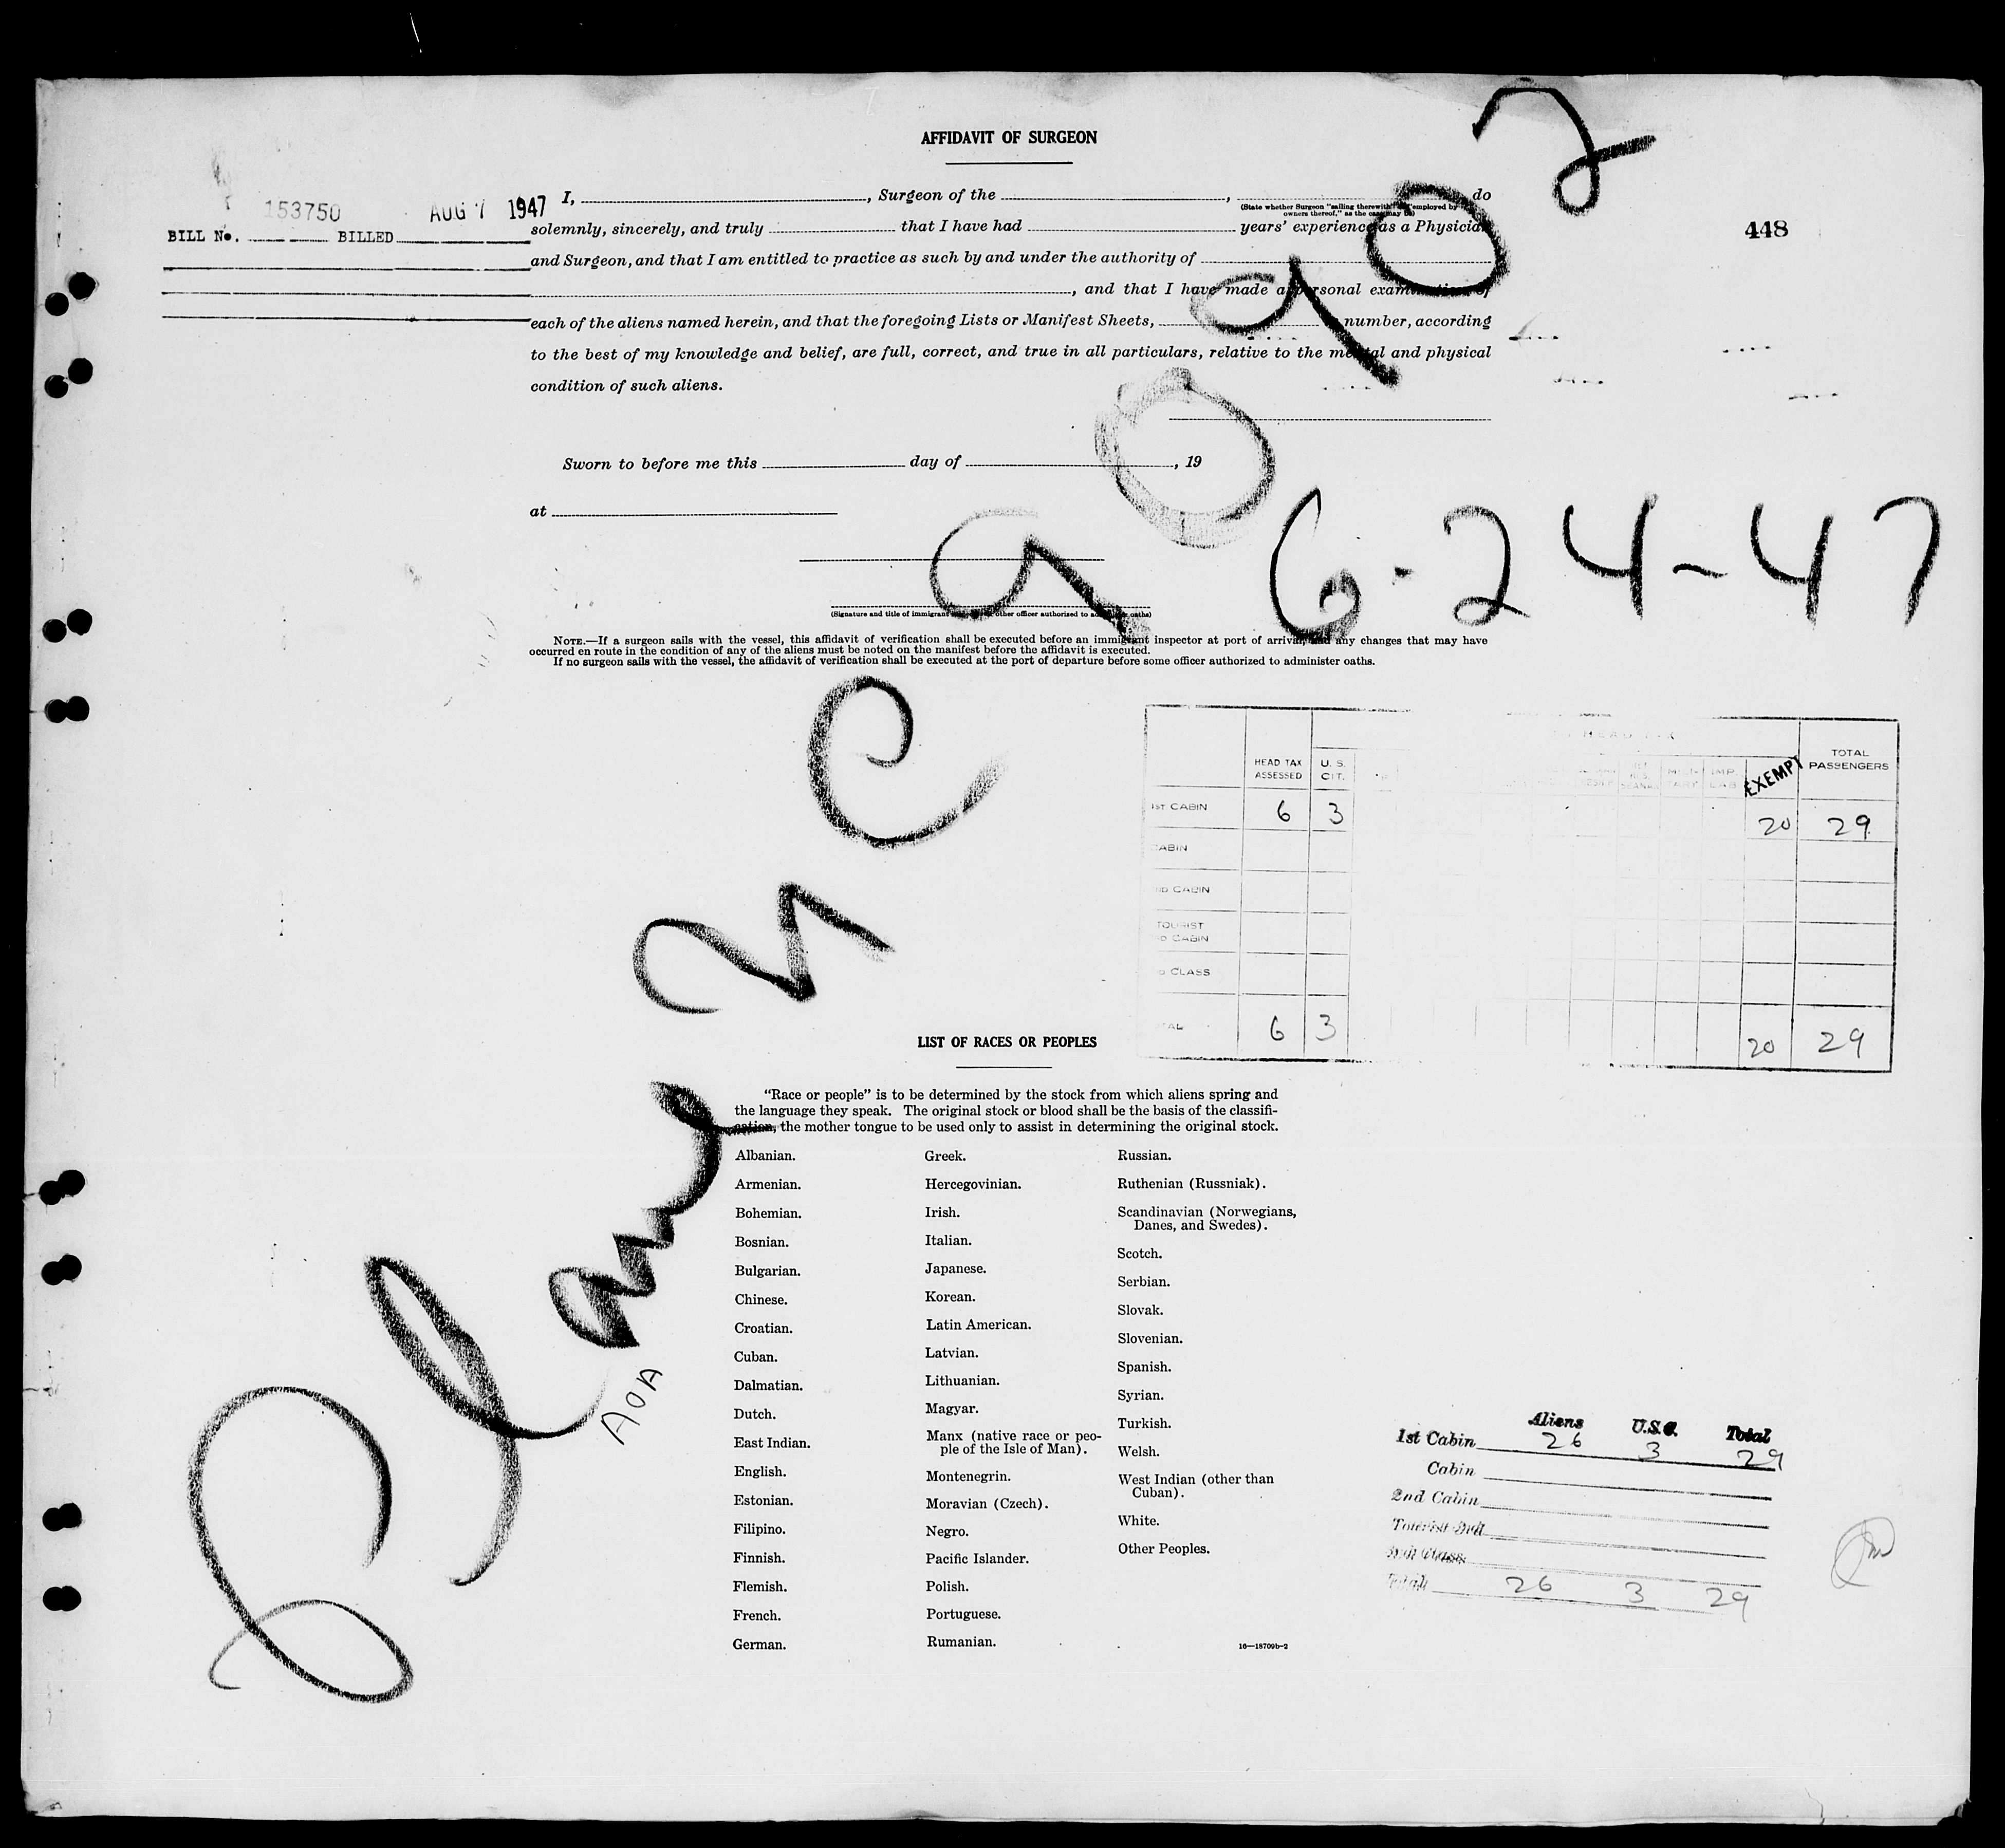 AFFIDAVIT OF SURGEON
153750 AUG 7 1947
BILL No. BILLED
448
I, , Surgeon of the , do
(State whether Surgeon "sailing therewith" or "employed by
owners thereof," as the case may be)
solemnly, sincerely, and truly that I have had years' experience as a Physician
and Surgeon, and that I am entitled to practice as such by and under the authority of
, and that I have made a personal examination of
each of the aliens named herein, and that the foregoing Lists or Manifest Sheets, number, according
to the best of my knowledge and belief, are full, correct, and true in all particulars, relative to the mental and physical
condition of such aliens.
Sworn to before me this day of , 19
at
6-24-47
(Signature and title of immigrant other officer authorized to administer oaths)
NOTE.—If a surgeon sails with the vessel, this affidavit of verification shall be executed before an immigrant inspector at port of arrival, and any changes that may have
occurred en route in the condition of any of the aliens must be noted on the manifest before the affidavit is executed.
If no surgeon sails with the vessel, the affidavit of verification shall be executed at the port of departure before some officer authorized to administer oaths.
Plane NC 90902
AOA
HEAD TAX
HEAD TAX ASSESSED U. S. CIT. EXEMPT TOTAL PASSENGERS
1ST CABIN 6 3 20 29
CABIN
2ND CABIN
TOURIST
3D CABIN
3D CLASS
TOTAL 6 3 20 29
LIST OF RACES OR PEOPLES
"Race or people" is to be determined by the stock from which aliens spring and
the language they speak. The original stock or blood shall be the basis of the classifi-
cation, the mother tongue to be used only to assist in determining the original stock.
Albanian.
Armenian.
Bohemian.
Bosnian.
Bulgarian.
Chinese.
Croatian.
Cuban.
Dalmatian.
Dutch.
East Indian.
English.
Estonian.
Filipino.
Finnish.
Flemish.
French.
German.
Greek.
Hercegovinian.
Irish.
Italian.
Japanese.
Korean.
Latin American.
Latvian.
Lithuanian.
Magyar.
Manx (native race or peo-
ple of the Isle of Man).
Montenegrin.
Moravian (Czech).
Negro.
Pacific Islander.
Polish.
Portuguese.
Rumanian.
Russian.
Ruthenian (Russniak).
Scandinavian (Norwegians,
Danes, and Swedes).
Scotch.
Serbian.
Slovak.
Slovenian.
Spanish.
Syrian.
Turkish.
Welsh.
West Indian (other than
Cuban).
White.
Other Peoples.
16—18709b-2
Aliens U.S.C. Total
1st Cabin 26 3 29
Cabin
2nd Cabin
Tourist 3rd
3rd Class
Total 26 3 29